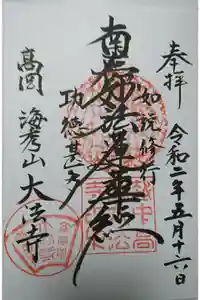 奉拝
令和二年五月十六日
如説修行
南無妙法蓮華経
功徳甚多
高岡
海老山 大法寺